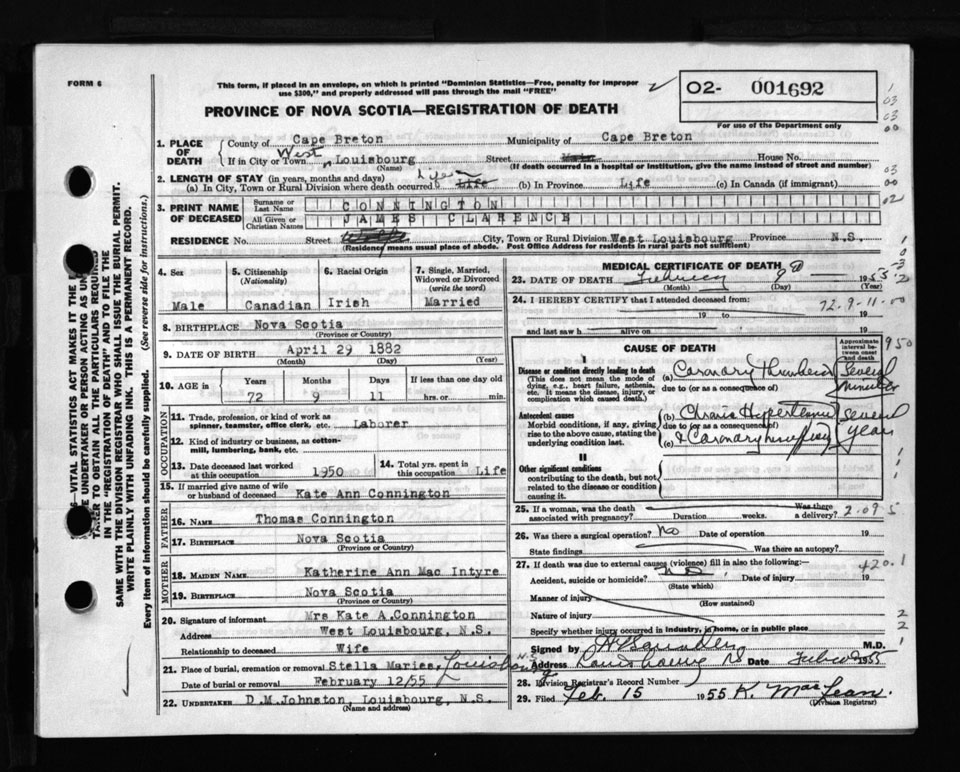 FORM 6
This form, if placed in an envelope, on which is printed "Dominion Statistics—Free, penalty for improper
use $300," and properly addressed will pass through the mail "FREE"
O2- 001692
PROVINCE OF NOVA SCOTIA—REGISTRATION OF DEATH
For use of the Department only
1. PLACE OF DEATH
County of Cape Breton Municipality of Cape Breton
If in City or Town West Louisbourg Street House No.
(Name) (If death occurred in a hospital or institution, give the name instead of street and number)
2. LENGTH OF STAY (in years, months and days)
(a) In City, Town or Rural Division where death occurred Life (b) In Province Life (c) In Canada (if immigrant)
3. PRINT NAME OF DECEASED
Surname or Last Name CONNINGTON
All Given or Christian Names JAMES CLARENCE
RESIDENCE No. Street City, Town or Rural Division West Louisbourg Province N.S.
(Residency means usual place of abode. Post Office Address for residents in rural parts not sufficient)
4. Sex Male
5. Citizenship (Nationality) Canadian
6. Racial Origin Irish
7. Single, Married, Widowed or Divorced (write the word) Married
8. BIRTHPLACE Nova Scotia
(Province or Country)
9. DATE OF BIRTH April 29 1882
(Month) (Day) (Year)
10. AGE IN Years Months Days If less than one day old
72 9 11 hrs. or min.
OCCUPATION
11. Trade, profession, or kind of work as spinner, teamster, office clerk, etc. Laborer
12. Kind of industry or business, as cotton-mill, lumbering, bank, etc.
13. Date deceased last worked at this occupation 1950
14. Total yrs. spent in this occupation Life
15. If married give name of wife or husband of deceased Kate Ann Connington
FATHER
16. NAME Thomas Connington
17. BIRTHPLACE Nova Scotia
(Province or Country)
MOTHER
18. MAIDEN NAME Katherine Ann Mac Intyre
19. BIRTHPLACE Nova Scotia
(Province or Country)
20. Signature of informant Mrs Kate A.Connington
Address West Louisbourg, N.S.
Relationship to deceased Wife
21. Place of burial, cremation or removal Stella Maries, Louisbourg N.S
Date of burial or removal February 12/55
22. UNDERTAKER D.M.Johnston, Louisbourg, N.S.
(Name and address)
MEDICAL CERTIFICATE OF DEATH
23. DATE OF DEATH February 1955
(Month) (Day)
24. I HEREBY CERTIFY that I attended deceased from:
72-9-11-00
19 to 19
and last saw h alive on 19
CAUSE OF DEATH
Approximate interval between onset and death
950
I
Disease or condition directly leading to death
(This does not mean the mode of dying, e.g., heart failure, asthenia, etc. It means the disease, injury, or complication which caused death.)
(a) Coronary Thrombosis Several minutes
due to (or as a consequence of)
Antecedent causes
Morbid conditions, if any, giving rise to the above cause, stating the underlying condition last.
(b) Chronic Hypertension several years
due to (or as a consequence of)
(c) & Coronary insufficiency
II
Other significant conditions
contributing to the death, but not related to the disease or condition causing it.
25. If a woman, was the death associated with pregnancy? Duration weeks. Was there a delivery? 2.09 5
26. Was there a surgical operation? No Date of operation 19
State findings Was there an autopsy?
27. If death was due to external causes (violence) fill in also the following:— 420.1
Accident, suicide or homicide? No Date of injury 19
(State which)
Manner of injury
(How sustained)
Nature of injury
Specify whether injury occurred in industry, in home, or in public place
Signed by M.D.
Address Louisbourg NS Date 1955
28. Division Registrar's Record Number
29. Filed Feb. 15 1955 K. MacLean.
(Division Registrar)
VITAL STATISTICS ACT MAKES IT THE
UNDERTAKER OR PERSON ACTING AS
TO OBTAIN ALL THE PARTICULARS
IN THE "REGISTRATION OF DEATH" AND TO FILE THE
SAME WITH THE DIVISION REGISTRAR WHO SHALL ISSUE THE BURIAL PERMIT.
WRITE PLAINLY WITH UNFADING INK. THIS IS A PERMANENT RECORD.
Every item of information should be carefully supplied. (See reverse side for instructions.)